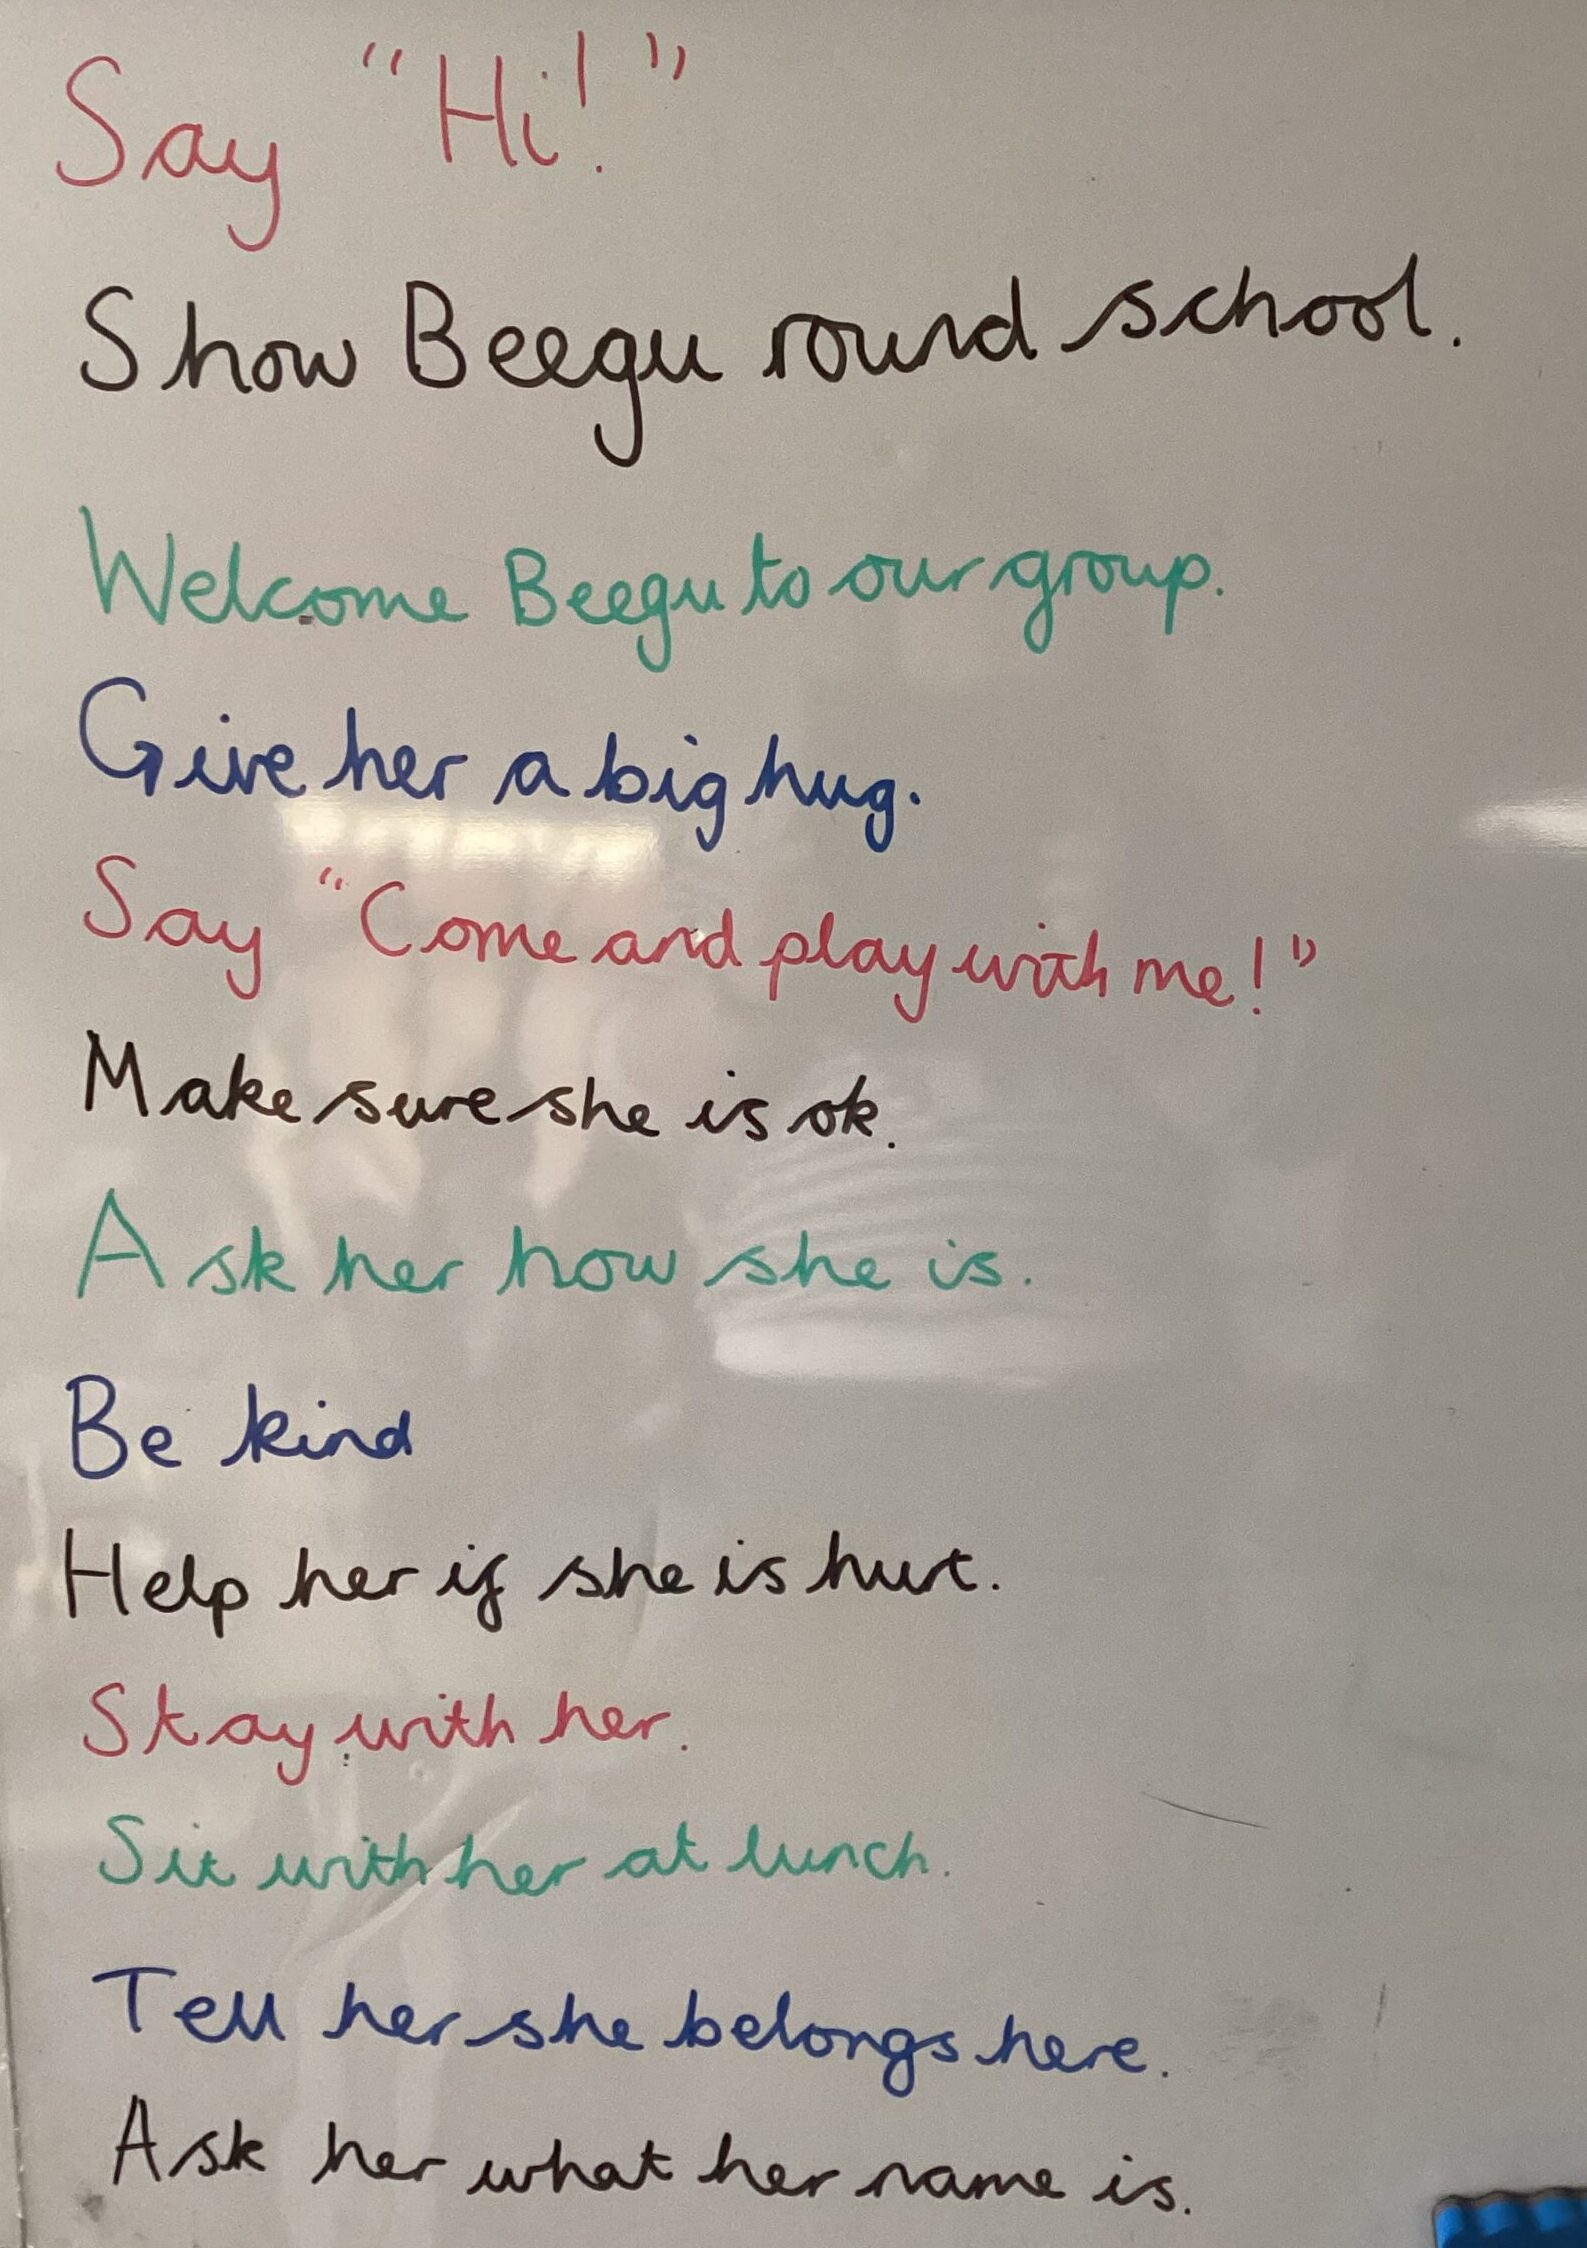 Say "Hi!"
Show Beegu round school.
Welcome Beegu to our group.
Give her a big hug.
Say "Come and play with me!"
Make sure she is ok.
Ask her how she is.
Be kind
Help her if she is hurt.
Stay with her.
Sit with her at lunch.
Tell her she belongs here.
Ask her what her name is.